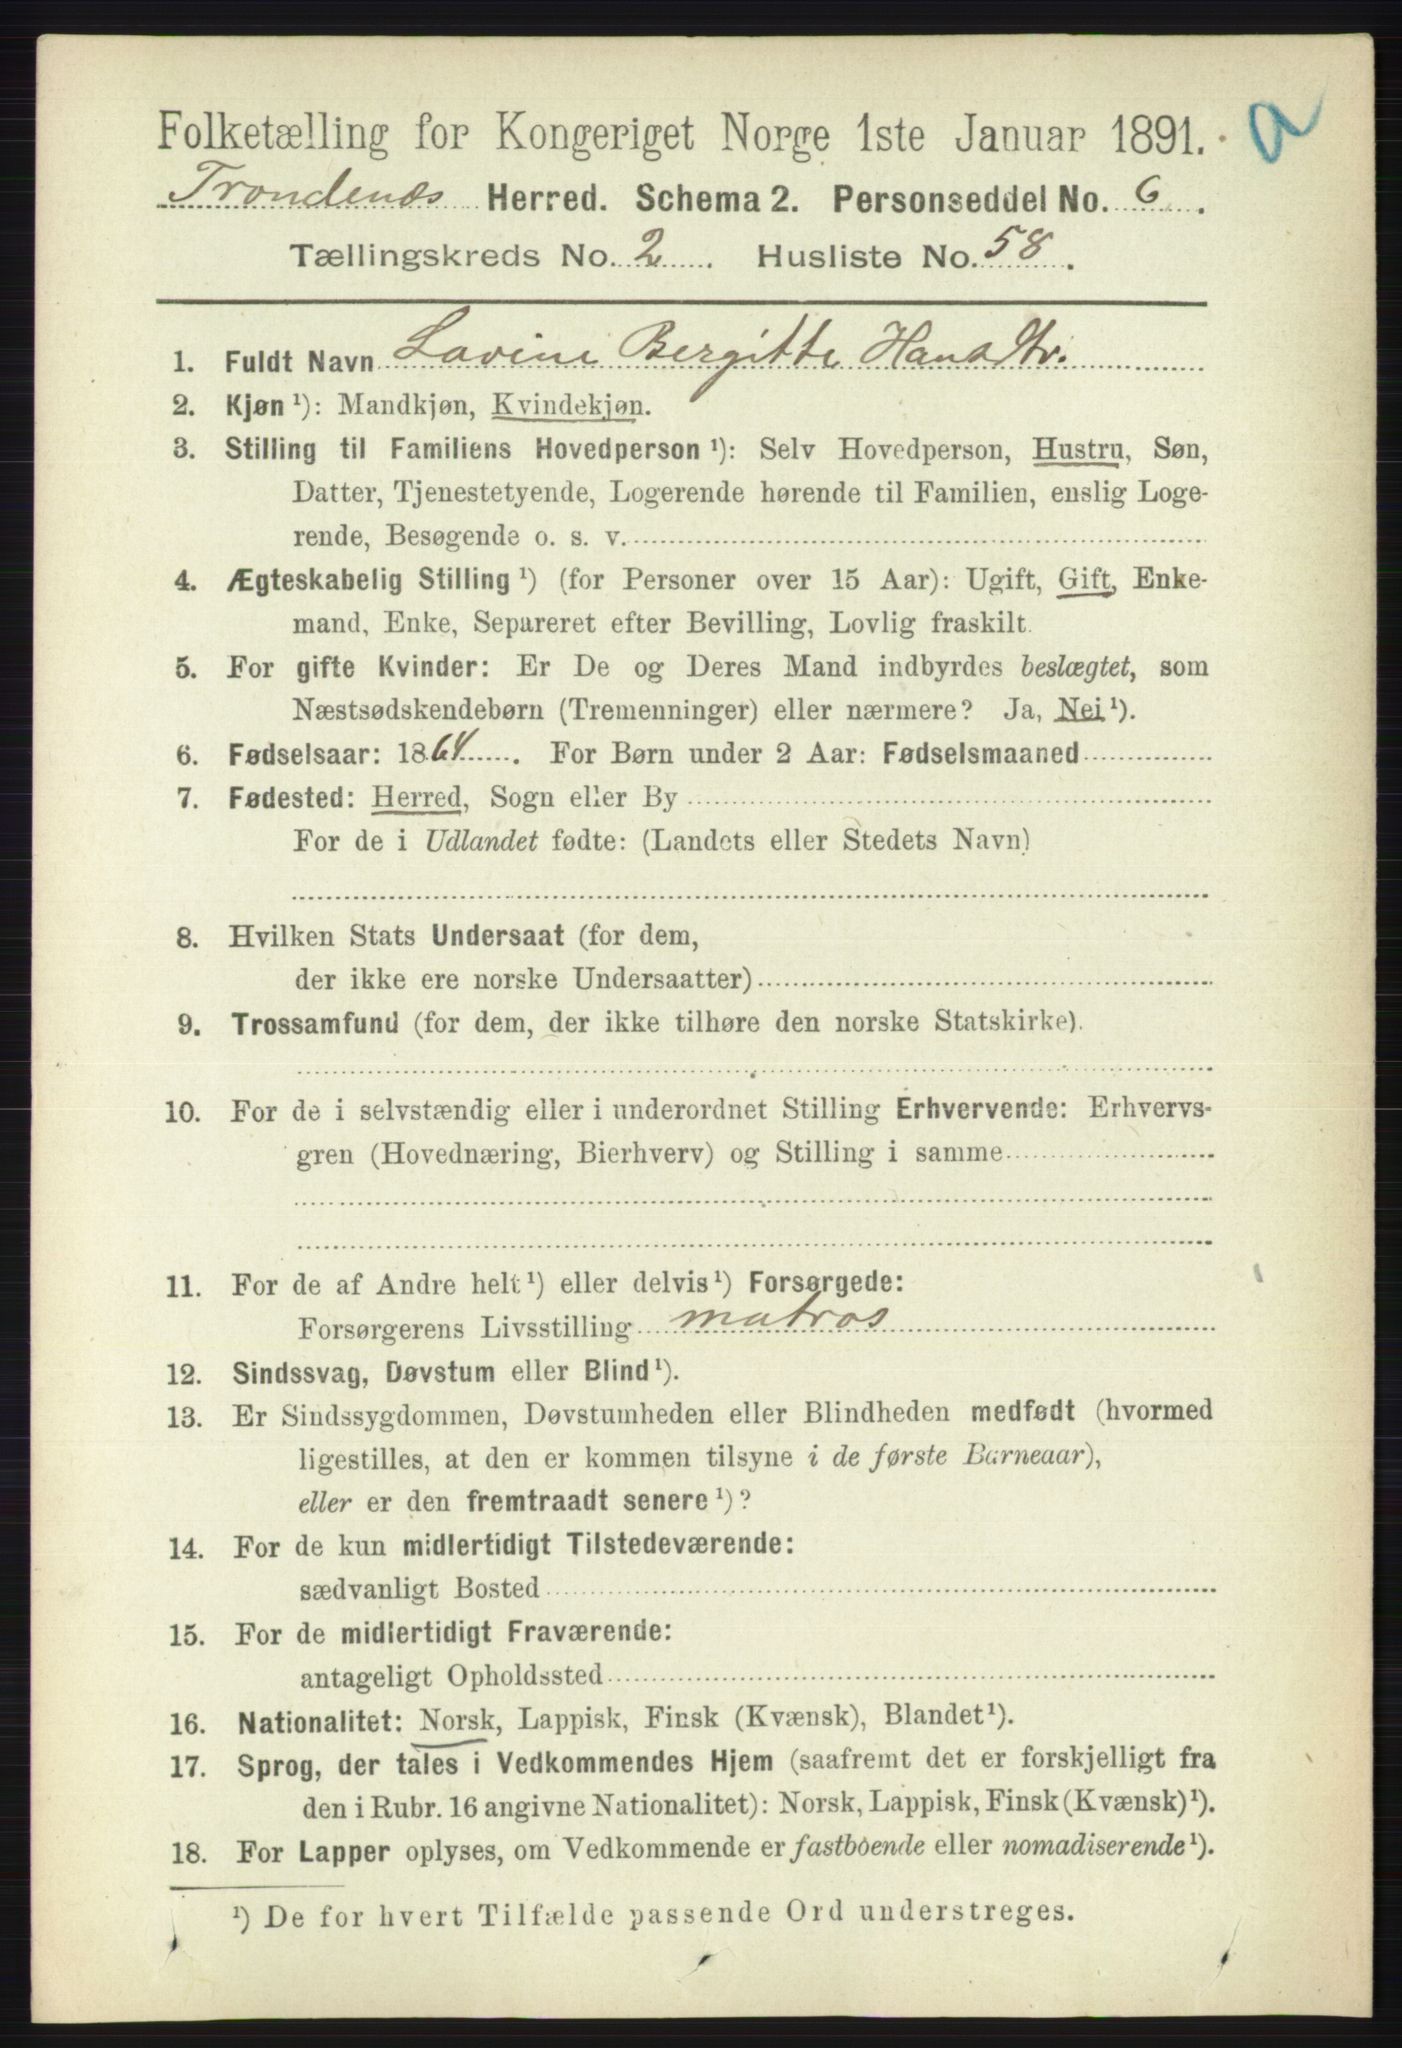 Folketælling for Kongeriget Norge 1ste Januar 1891.
a
Trondenæs Herred. Schema 2. Personseddel No. 6.
Tællingskreds No. 2. Husliste No. 58.
1. Fuldt Navn Lovine Bergitte Hansdtr.
2. Kjøn ¹): Mandkjøn, Kvindekjøn.
3. Stilling til Familiens Hovedperson ¹): Selv Hovedperson, Hustru, Søn,
Datter, Tjenestetyende, Logerende hørende til Familien, enslig Loge-
rende, Besøgende o. s. v.
4. Ægteskabelig Stilling ¹) (for Personer over 15 Aar): Ugift, Gift, Enke-
mand, Enke, Separeret efter Bevilling, Lovlig fraskilt.
5. For gifte Kvinder: Er De og Deres Mand indbyrdes beslægtet, som
Næstsødskendebørn (Tremenninger) eller nærmere? Ja, Nei ¹).
6. Fødselsaar: 1864. For Børn under 2 Aar: Fødselsmaaned
7. Fødested: Herred, Sogn eller By
For de i Udlandet fødte: (Landets eller Stedets Navn)
8. Hvilken Stats Undersaat (for dem,
der ikke ere norske Undersaatter)
9. Trossamfund (for dem, der ikke tilhøre den norske Statskirke).
10. For de i selvstændig eller i underordnet Stilling Erhvervende: Erhvervs-
gren (Hovednæring, Bierhverv) og Stilling i samme
11. For de af Andre helt ¹) eller delvis ¹) Forsørgede:
Forsørgerens Livsstilling matros
12. Sindssvag, Døvstum eller Blind ¹).
13. Er Sindssygdommen, Døvstumheden eller Blindheden medfødt (hvormed
ligestilles, at den er kommen tilsyne i de første Barneaar),
eller er den fremtraadt senere ¹)?
14. For de kun midlertidigt Tilstedeværende:
sædvanligt Bosted
15. For de midlertidigt Fraværende:
antageligt Opholdssted
16. Nationalitet: Norsk, Lappisk, Finsk (Kvænsk), Blandet ¹).
17. Sprog, der tales i Vedkommendes Hjem (saafremt det er forskjelligt fra
den i Rubr. 16 angivne Nationalitet): Norsk, Lappisk, Finsk (Kvænsk) ¹).
18. For Lapper oplyses, om Vedkommende er fastboende eller nomadiserende ¹).
¹) De for hvert Tilfælde passende Ord understreges.